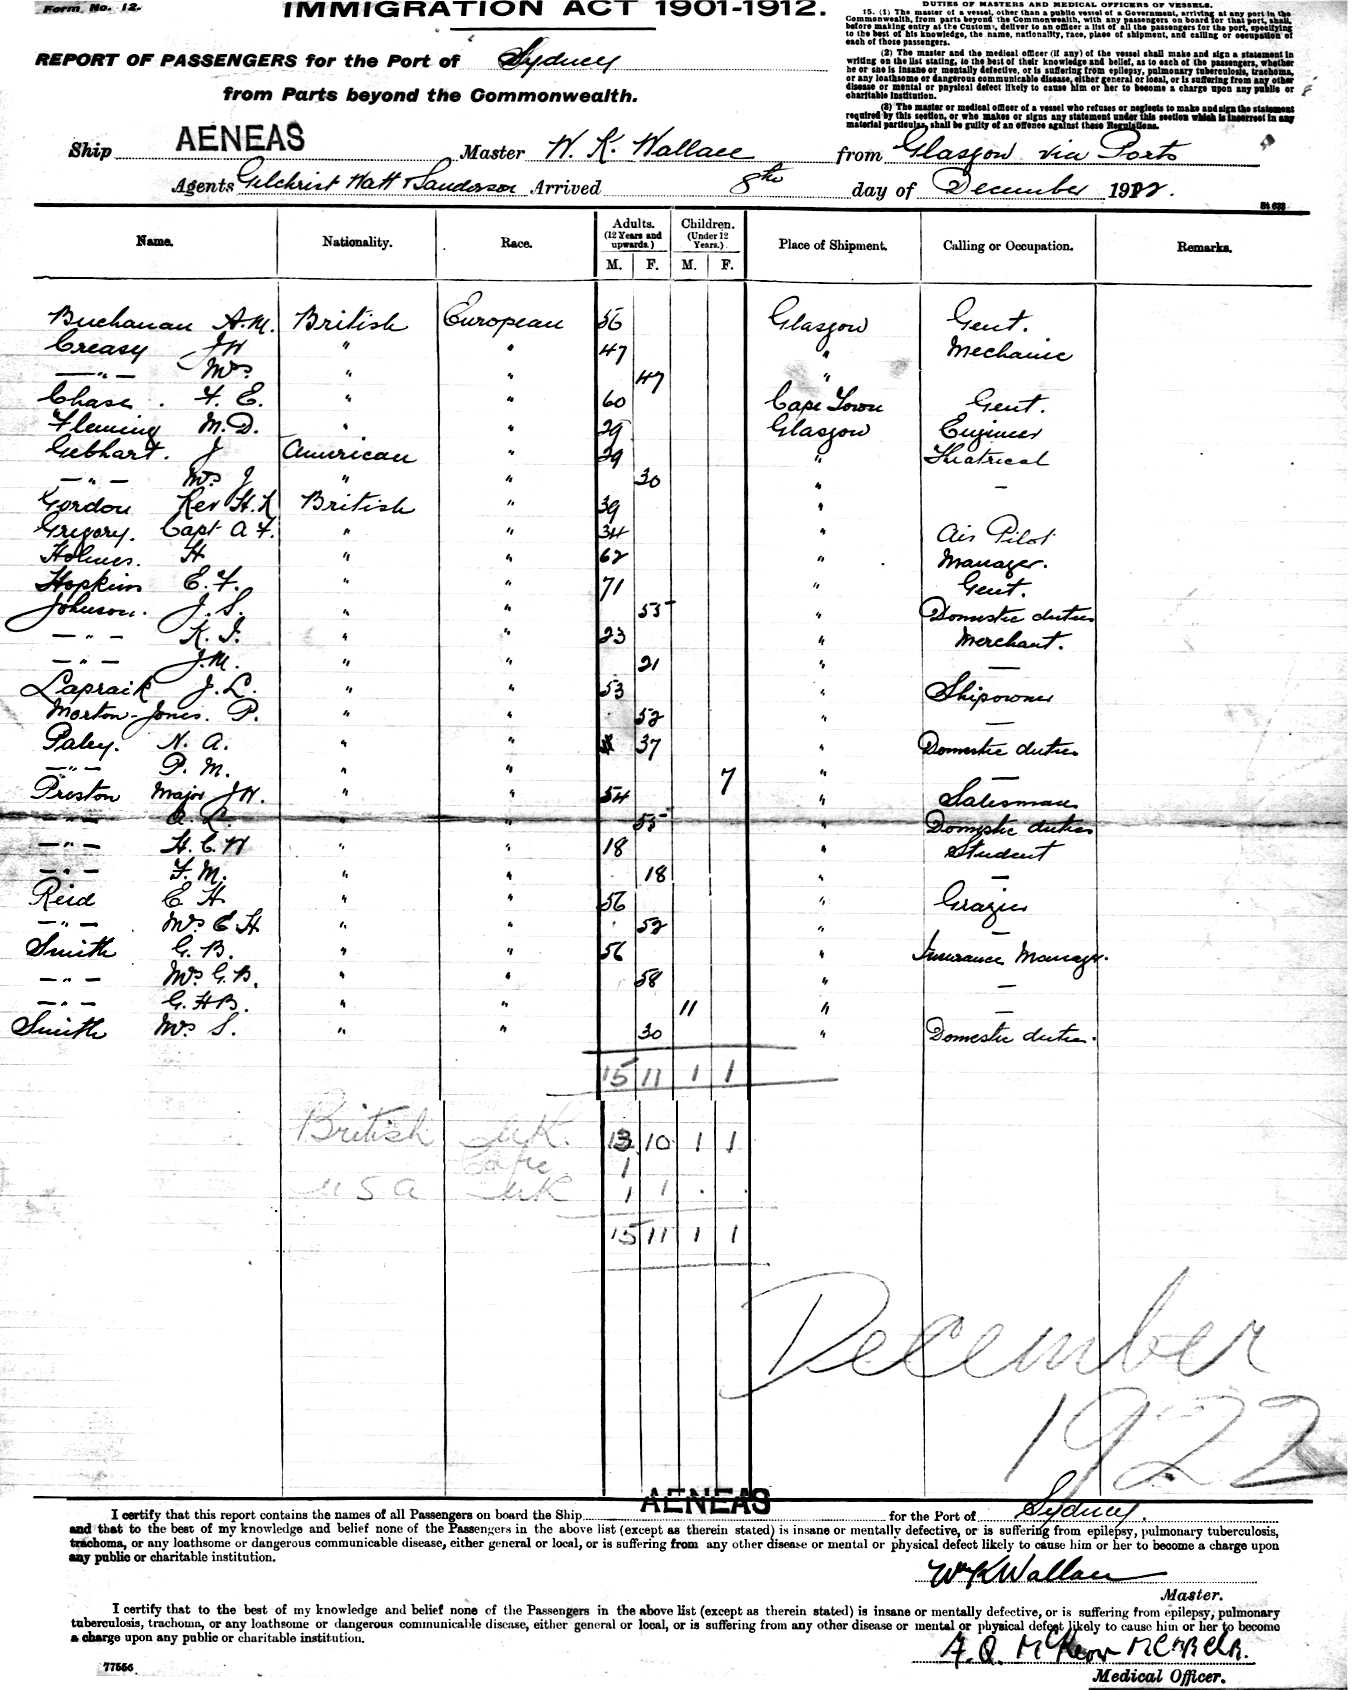 Form No. 12.
IMMIGRATION ACT 1901-1912.
REPORT OF PASSENGERS for the Port of Sydney
from Parts beyond the Commonwealth.
DUTIES OF MASTERS AND MEDICAL OFFICERS OF VESSELS.
15. (1) The master of a vessel, other than a public vessel of a Government, arriving at any port in the
Commonwealth, from parts beyond the Commonwealth, with any passengers on board for that port, shall,
before making entry at the Customs, deliver to an officer a list of all the passengers for the port, specifying
to the best of his knowledge, the name, nationality, race, place of shipment, and calling or occupation of
each of those passengers.
(2) The master and the medical officer (if any) of the vessel shall make and sign a statement in
writing on the list stating, to the best of their knowledge and belief, as to each of the passengers, whether
he or she is insane or mentally defective, or is suffering from epilepsy, pulmonary tuberculosis, trachoma,
or any loathsome or dangerous communicable disease, either general or local, or is suffering from any other
disease or mental or physical defect likely to cause him or her to become a charge upon any public or
charitable institution.
(3) The master or medical officer of a vessel who refuses or neglects to make and sign the statement
required by this section, or who makes or signs any statement under this section which is incorrect in any
material particular, shall be guilty of an offence against these Regulations.
Ship AENEAS Master W. K. Wallace from Glasgow via Ports
Agents Gilchrist Watt & Sanderson Arrived 8th day of December 1922.
Name. Nationality. Race. Adults. (12 Years and upwards.) Children. (Under 12 Years.) Place of Shipment. Calling or Occupation. Remarks.
M. F. M. F.
Buchanan A.M. British European 56 Glasgow Gent.
Creasy J W " " 47 " Mechanic
— " — Mrs " " 47 "
Chase. F. E. " " 60 Cape Town Gent.
Fleming M.D. " " 29 Glasgow Engineer
Gebhart. J American " 29 " Theatrical
— " — Mrs J " " 30 " —
Gordon Rev H. K British " 39 "
Gregory. Capt A F. " " 34 " Air Pilot
Holmes. H " " 62 " Manager.
Hopkins E. F. " " 71 " Gent.
Johnson. J. S. " " 55 " Domestic duties
— " — K. I. " " 23 " Merchant.
— " — J.M. " " 21 " —
Lapraik J. L. " " 53 " Shipowner
Morton-Jones. P. " " 52 " —
Paley. N. A. " " 37 " Domestic duties
— " — P. M. " " 7 " —
Preston Major J W. " " 54 " Salesman
— " — A L. " " 55 " Domestic duties
— " — H. C. W " " 18 " Student
— " — F. M. " " 18 " —
Reid E H " " 56 " Grazier
— " — Mrs E H " " 52 " —
Smith G. B. " " 56 " Insurance Manager.
— " — Mrs G. B. " " 58 " —
— " — G. H B. " " 11 " —
Smith Mrs S. " " 30 " Domestic duties.
15 11 1 1
British UK. 13 10 1 1
Cape 1
U S A UK 1 1 . .
15 11 1 1
December
1922
I certify that this report contains the names of all Passengers on board the Ship AENEAS for the Port of Sydney.
and that to the best of my knowledge and belief none of the Passengers in the above list (except as therein stated) is insane or mentally defective, or is suffering from epilepsy, pulmonary tuberculosis,
trachoma, or any loathsome or dangerous communicable disease, either general or local, or is suffering from any other disease or mental or physical defect likely to cause him or her to become a charge upon
any public or charitable institution.
W K Wallace
Master.
I certify that to the best of my knowledge and belief none of the Passengers in the above list (except as therein stated) is insane or mentally defective, or is suffering from epilepsy, pulmonary
tuberculosis, trachoma, or any loathsome or dangerous communicable disease, either general or local, or is suffering from any other disease or mental or physical defect likely to cause him or her to become
a charge upon any public or charitable institution.
77556
Medical Officer.